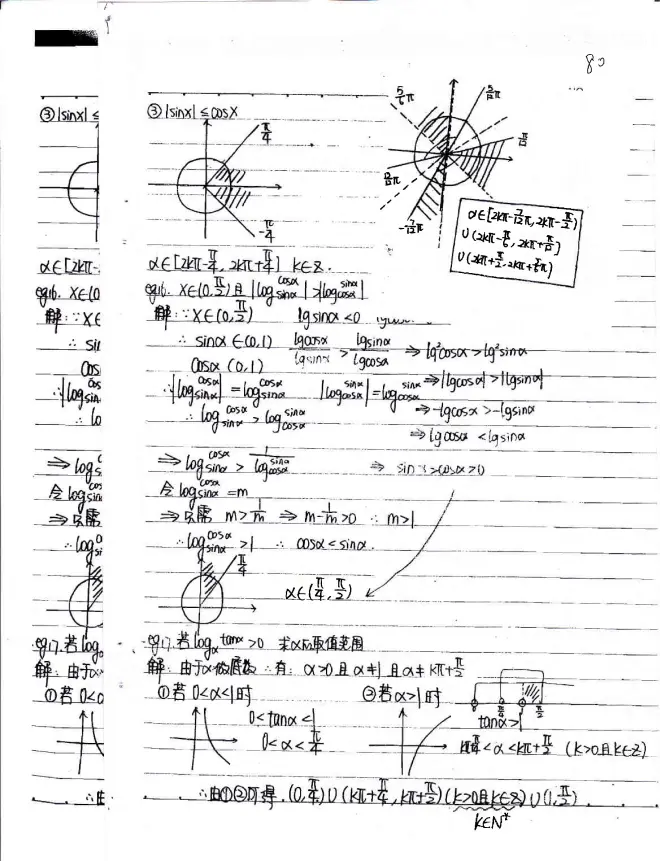 80
③ |sinx| ≤
③ |sinx| ≤ cosx
π/4
-π/4
5/6π
5/12π
π/12
-7/12π
α∈[2kπ-7/12π, 2kπ-π/2)
∪(2kπ-π/6, 2kπ+π/12]
α∈[2kπ-
α∈[2kπ-π/4, 2kπ+π/4] k∈Z.
eg16. X∈(0
eg16. X∈(0,π/2)且 |log_sinα cosα| > |log_cosα sinα|
解:∵X∈
解:∵X∈(0,π/2) lgsinα<0
∴ si
∴ sinα∈(0,1) lgcosα/lgsinα > lgsinα/lgcosα ⇒ lg²cosα>lg²sinα
cos
cosα (0,1)
∴|log_sin
∴|log_sinα cosα| = log_sinα cosα |log_cosα sinα| = log_cosα sinα ⇒|lgcosα|>|lgsinα|
∴ lo
∴ log_sinα cosα > log_cosα sinα ⇒ -lgcosα>-lgsinα
⇒ lgcosα<lgsinα
⇒ log_s
⇒ log_sinα cosα > 1/log_sinα cosα ⇒ sinα>cosα>0
令 log_sin
令 log_sinα cosα = m
⇒ 只需
⇒ 只需 m>1/m ⇒ m-1/m>0 ∴ m>1
∴ log_si
∴ log_sinα cosα >1 ∴ cosα<sinα.
π/4
α∈(π/4, π/2)
eg17. 若log_α
eg17. 若log_α tanα>0 求α的取值范围
解: 由于α
解: 由于α做底数 ∴有: α>0且α≠1且α≠kπ+π/2
①若 0<α
①若 0<α<1时 ②若α>1时
0<tanα<1 tanα>1
0<α<π/4 kπ+π/4<α<kπ+π/2 (k>0且k∈Z)
∴由
∴由①②可得. (0,π/4)∪(kπ+π/4, kπ+π/2)(k>0且k∈Z)∪(1,π/2).
k∈N*